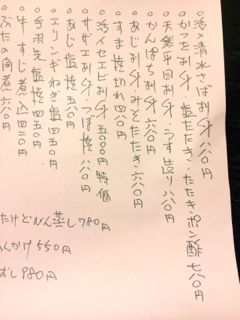 ○活〆清水さば刺身 八八〇円
○かつお刺身、塩たたき、たたき、ポン酢 七八〇円
○天然平目刺身・うす造り 八八〇円
○かんぱち刺身 六八〇円
○あじ刺身・みそたたき 六八〇円
○すま焼切れ 四八〇円
○活〆セエビ刺身 五八〇円 特価
○サザエ刺身・つぼ焼 八八〇円
○あじ塩焼 五八〇円
○エリンギねぎ塩 四五〇円
○手羽先塩焼 四五〇円
○牛すじ煮込 四二〇円
○ぶたの角煮 六八〇円
たけどびん蒸し780円
んかけ550円
むし980円